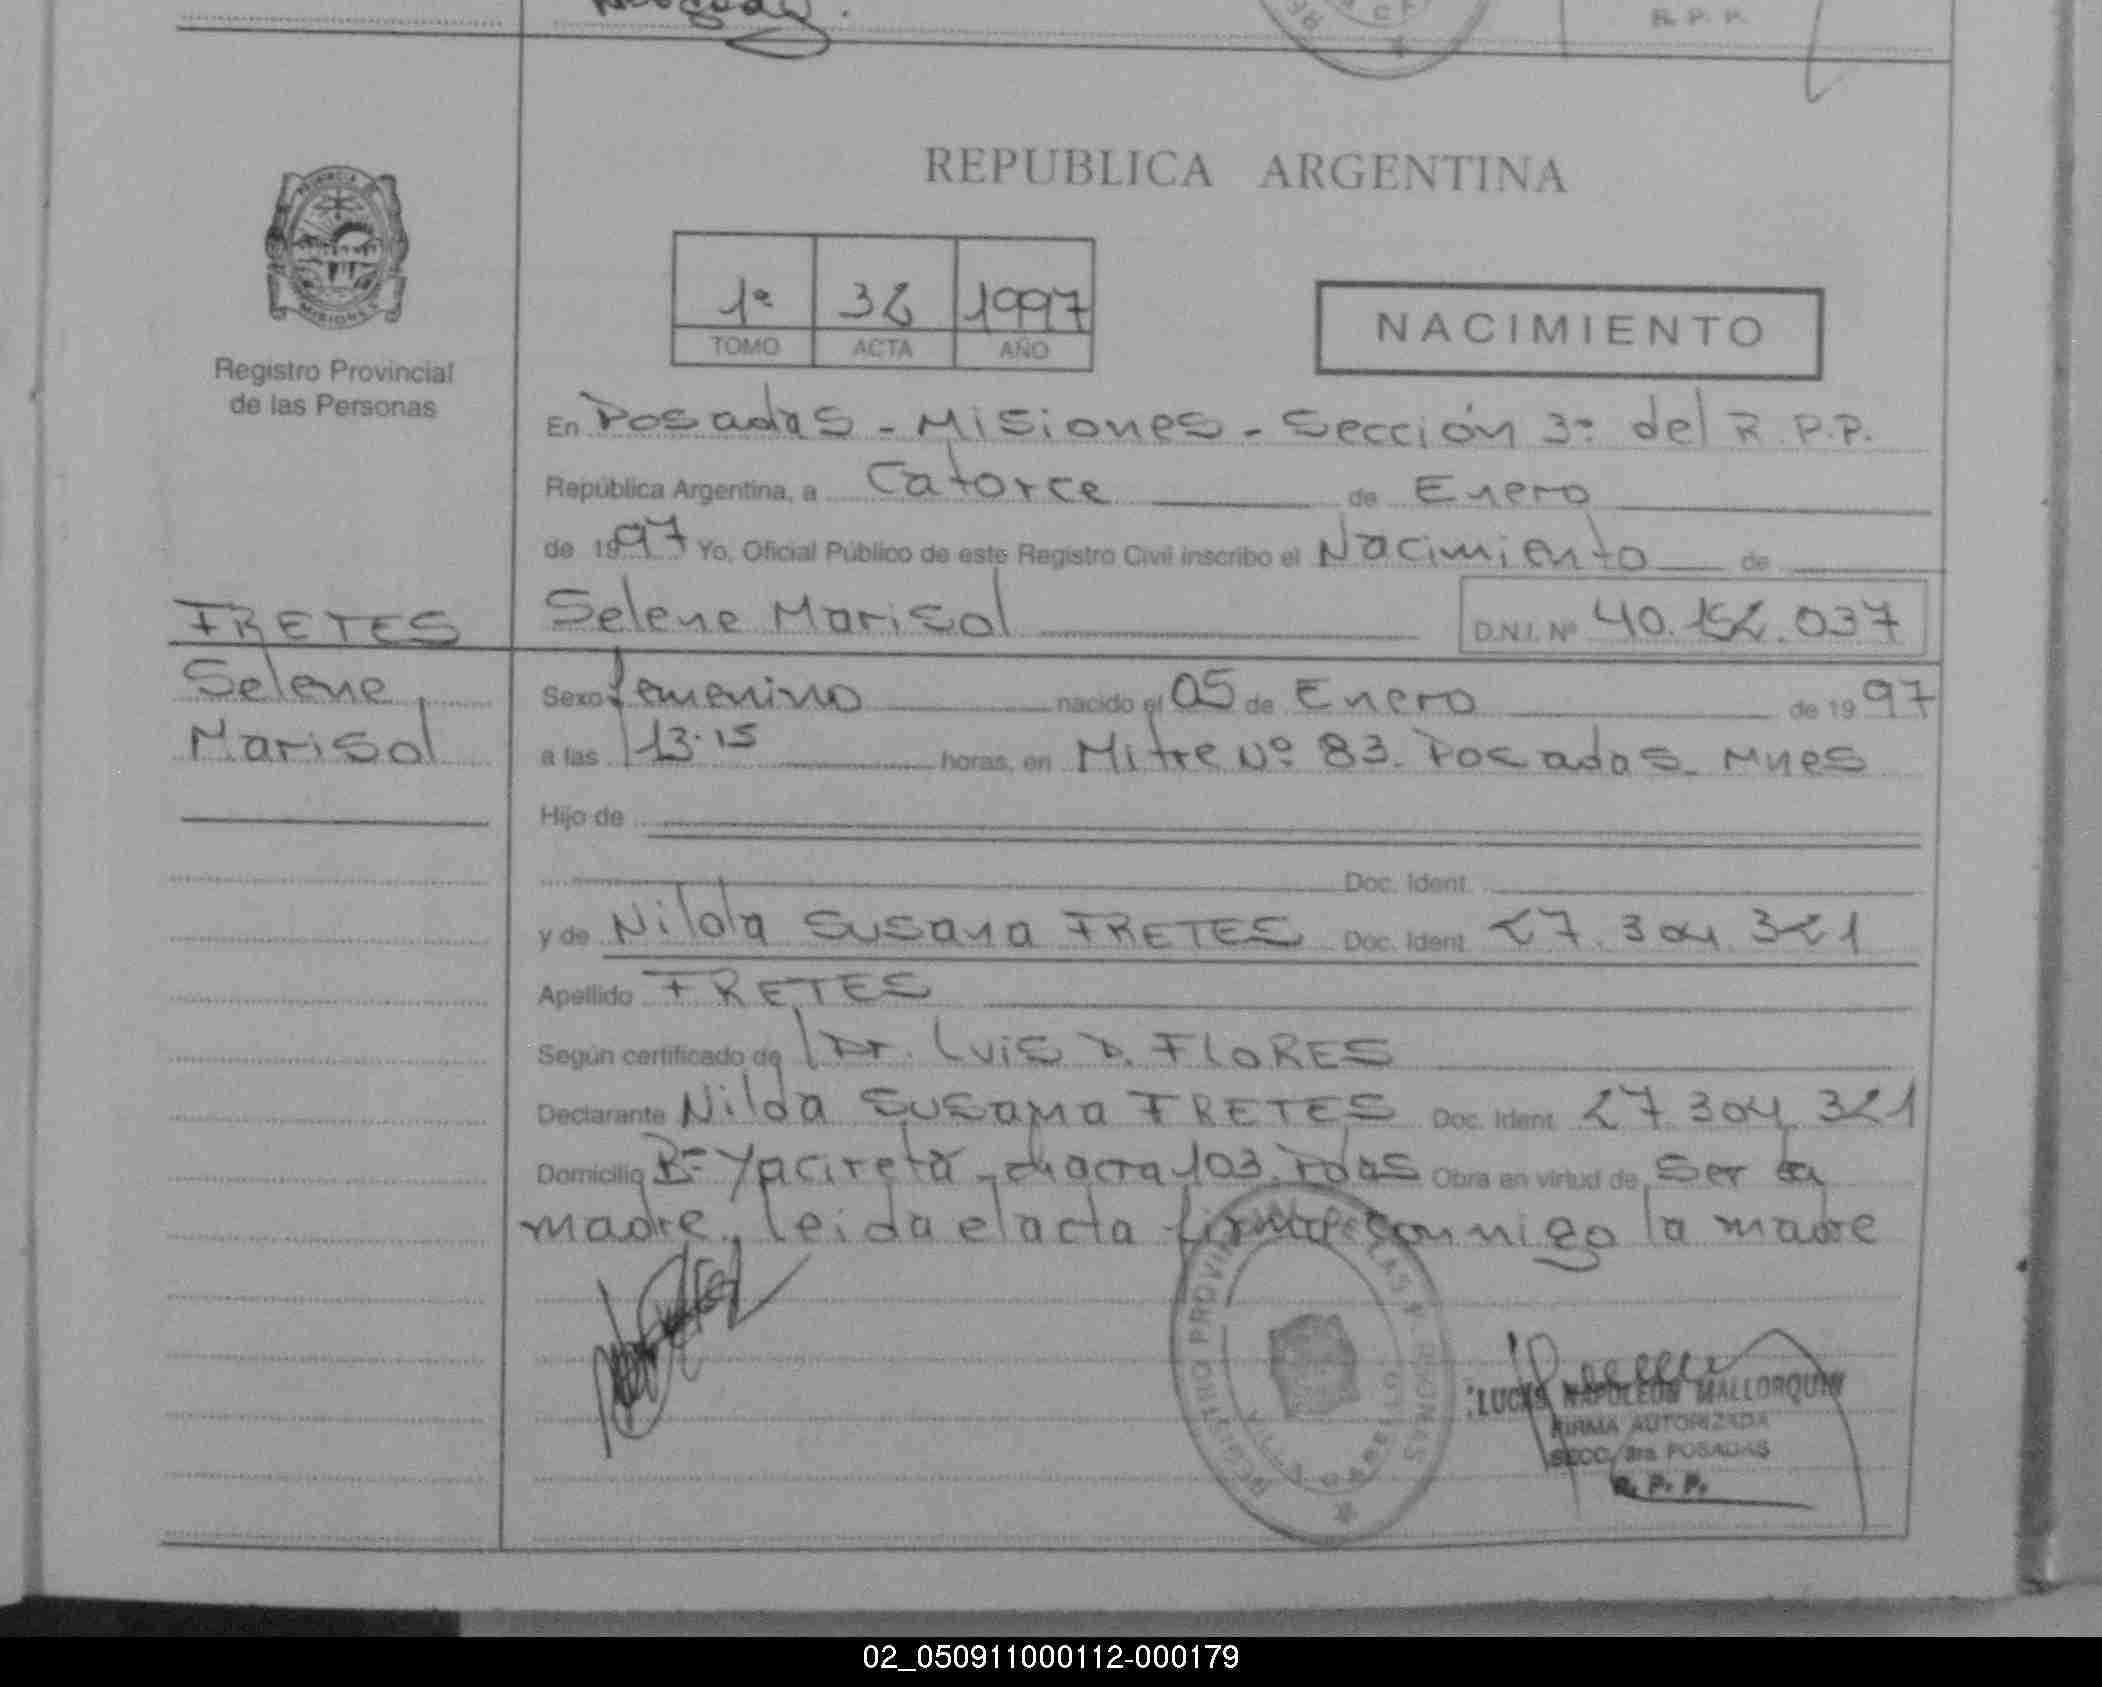 R. P. P.
REPUBLICA ARGENTINA
PROVINCIA DE
MISIONES
Registro Provincial
de las Personas
1ª 32 1997
TOMO ACTA AÑO
NACIMIENTO
En Posadas - Misiones - Sección 3ª del R.P.P.
República Argentina, a Catorce de Enero
de 1997 Yo, Oficial Público de este Registro Civil inscribo el Nacimiento de
FRETES
Selene Marisol D.N.I. Nº 40.152.037
Selene
Marisol
Sexo femenino nacido el 05 de Enero de 1997
a las 13.15 horas, en Mitre Nº 83. Posadas. Mnes
Hijo de
Doc. Ident.
y de Nilda Susana FRETES Doc. Ident. 27.304.321
Apellido FRETES
Según certificado de Dr. Luis D. FLORES
Declarante Nilda Susana FRETES Doc. Ident. 27.304.321
Domicilio Bº Yacireta - chacra 103. Pdas Obra en virtud de Ser la
madre. leida el acta firma conmigo la madre
REGISTRO PROVINCIAL DE LAS PERSONAS
LUCAS NAPOLEON MALLORQUIN
FIRMA AUTORIZADA
SECC. 3ra. POSADAS
R. P. P.
02_050911000112-000179